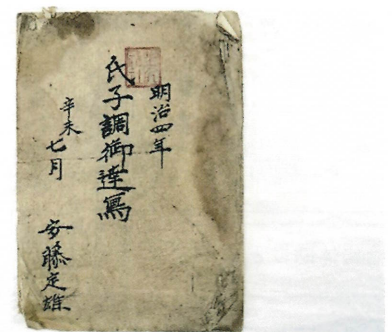 明治四年
氏子調御達写
辛未七月
安藤定雄